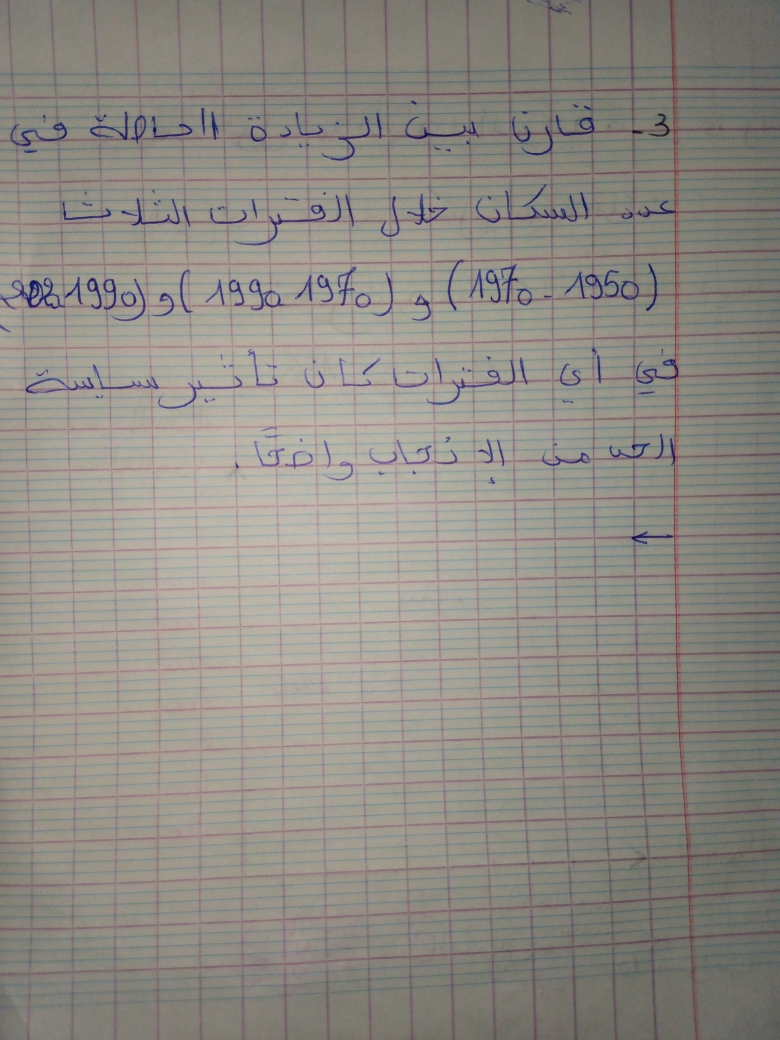 3- قارن بين الزيادة الحاصلة في
عدد السكان خلال الفترات الثلاث
(1950 - 1970) و (1970 1990) و (1990
في أي الفترات كان تأثير سياسة
الحد من الإنجاب واضحًا.
←